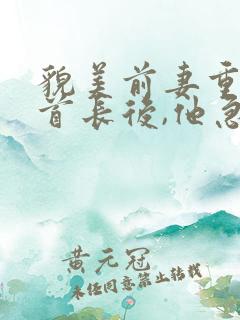 貌美前妻重
首长後,他急
黄元冠
未经同意禁止转载